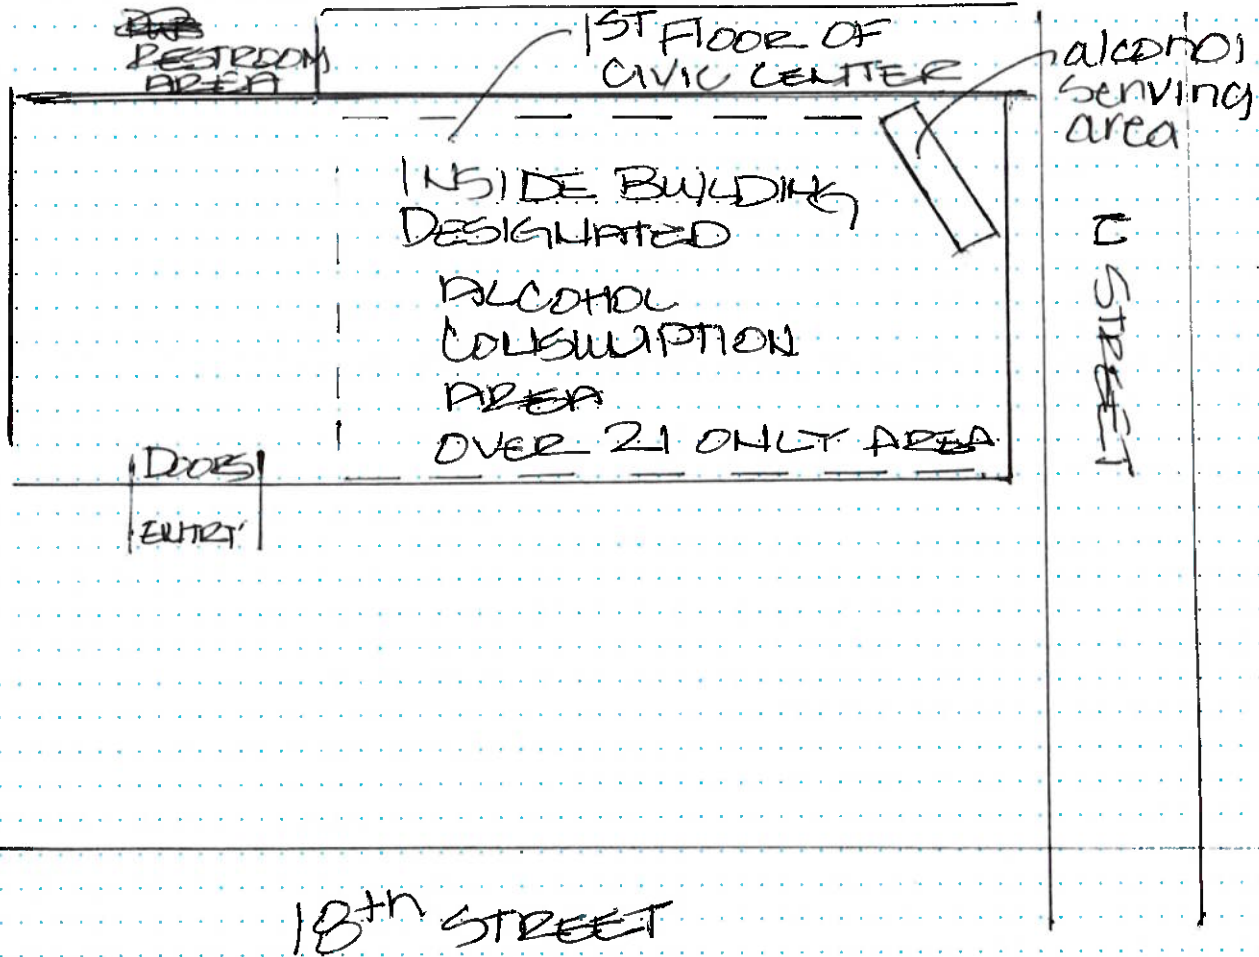 RESTROOM
AREA
1ST FLOOR OF
CIVIC CENTER
alcohol
serving
area
INSIDE BUILDING
DESIGNATED
ALCOHOL
CONSUMPTION
AREA
OVER 21 ONLY AREA
DOORS
ENTRY
STREET
18th STREET